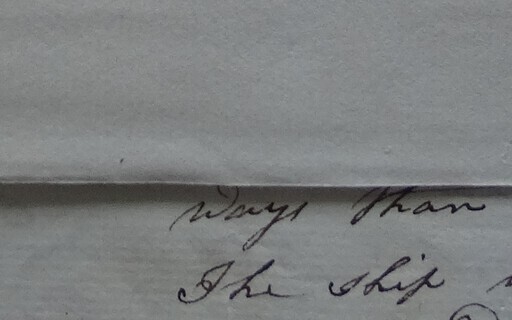 days than
The ship